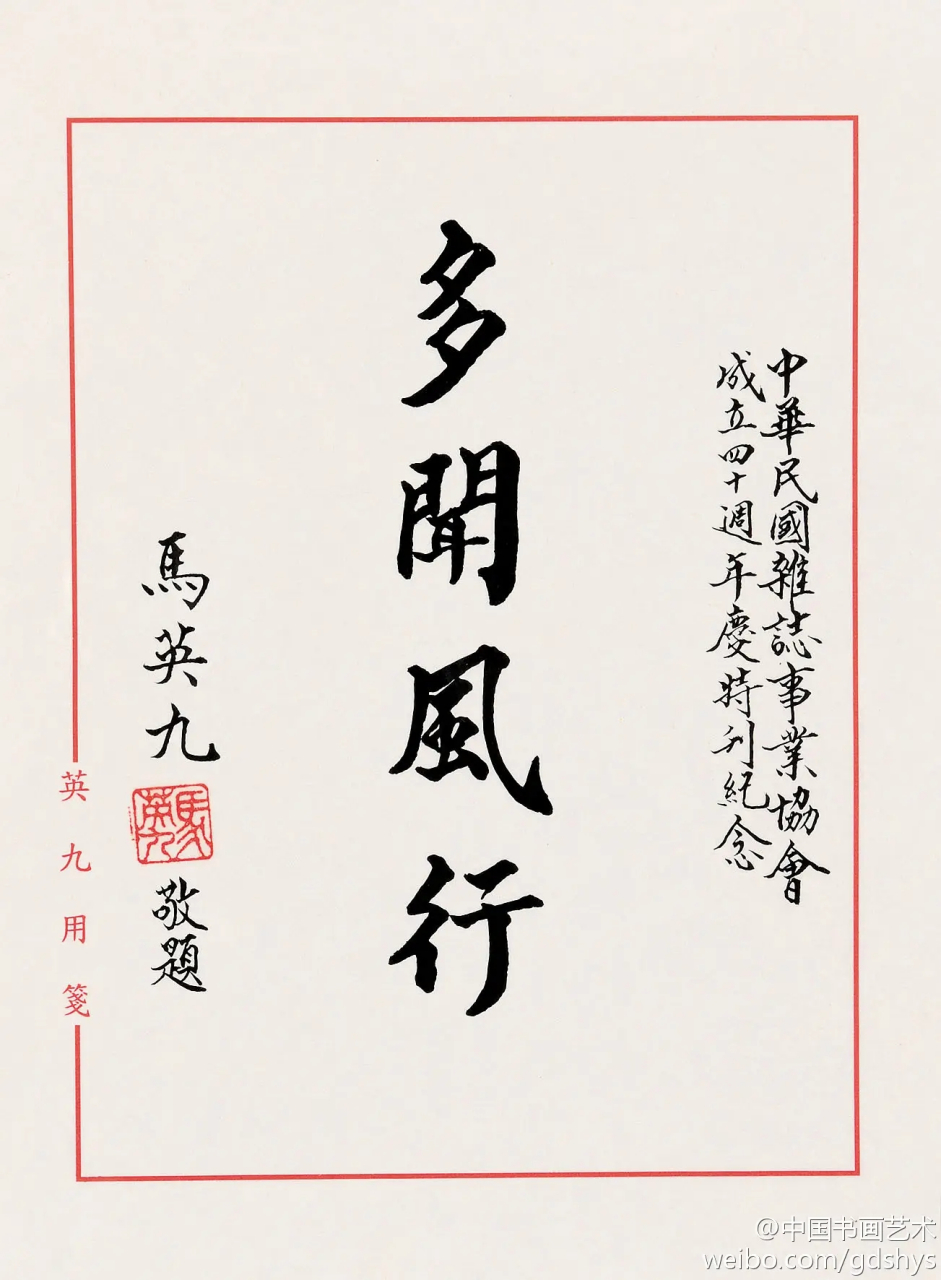 中華民國雜誌事業協會
成立四十週年慶特刊紀念
多聞風行
馬英九
馬英九
敬題
英九用箋
@中国书画艺术
weibo.com/gdshys